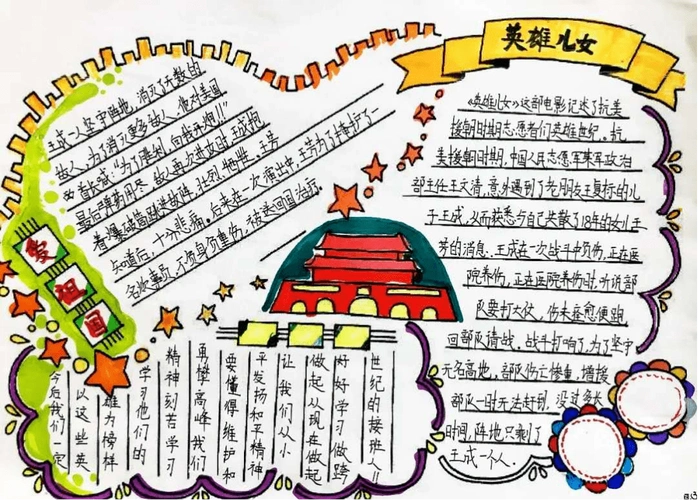 英雄儿女
《英雄儿女》这部电影记述了抗美
援朝时期志愿者们英雄世纪。抗
美援朝时期，中国人民志愿军某军政治
部主任王文清，意外遇到了老朋友王复标的儿
子王成，从而获悉与自己失散了18年的女儿王
芳的消息。王成在一次战斗中负伤，正在医
院养伤，正在医院养伤时，听说部
队要打大仗，伤未痊愈便跑
回部队请战。战斗打响了，为了坚守
无名高地，部队伤亡惨重，增援
部队一时无法赶到，没过多长
时间，阵地只剩了
王成一个人。
王成一人坚守阵地，消灭了无数的
敌人，为了消灭更多敌人，他对美国
首长喊："为了胜利，向我开炮！"
最后弹药用尽，敌人再次进攻时，王成抱
着爆破筒跳进敌阵，壮烈牺牲。王芳
知道后，十分悲痛。后来在一次演出中，王芳为了掩护一
名炊事员，不慎身负重伤，被送回国治疗。
爱
祖
国
今后我们一定
以这些英
雄为榜样
学习他们的
精神刻苦学习
勇攀高峰我们
要懂得维护和
平发扬和平精神
让我们从小
做起从现在做起
好好学习做跨
世纪的接班人！！